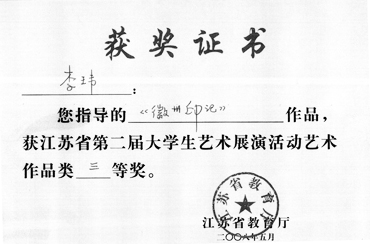 获奖证书
李玮:
您指导的《徽州印记》作品,
获江苏省第二届大学生艺术展演活动艺术
作品类三等奖。
江苏省教育厅
江苏省教育厅
二〇〇八年五月